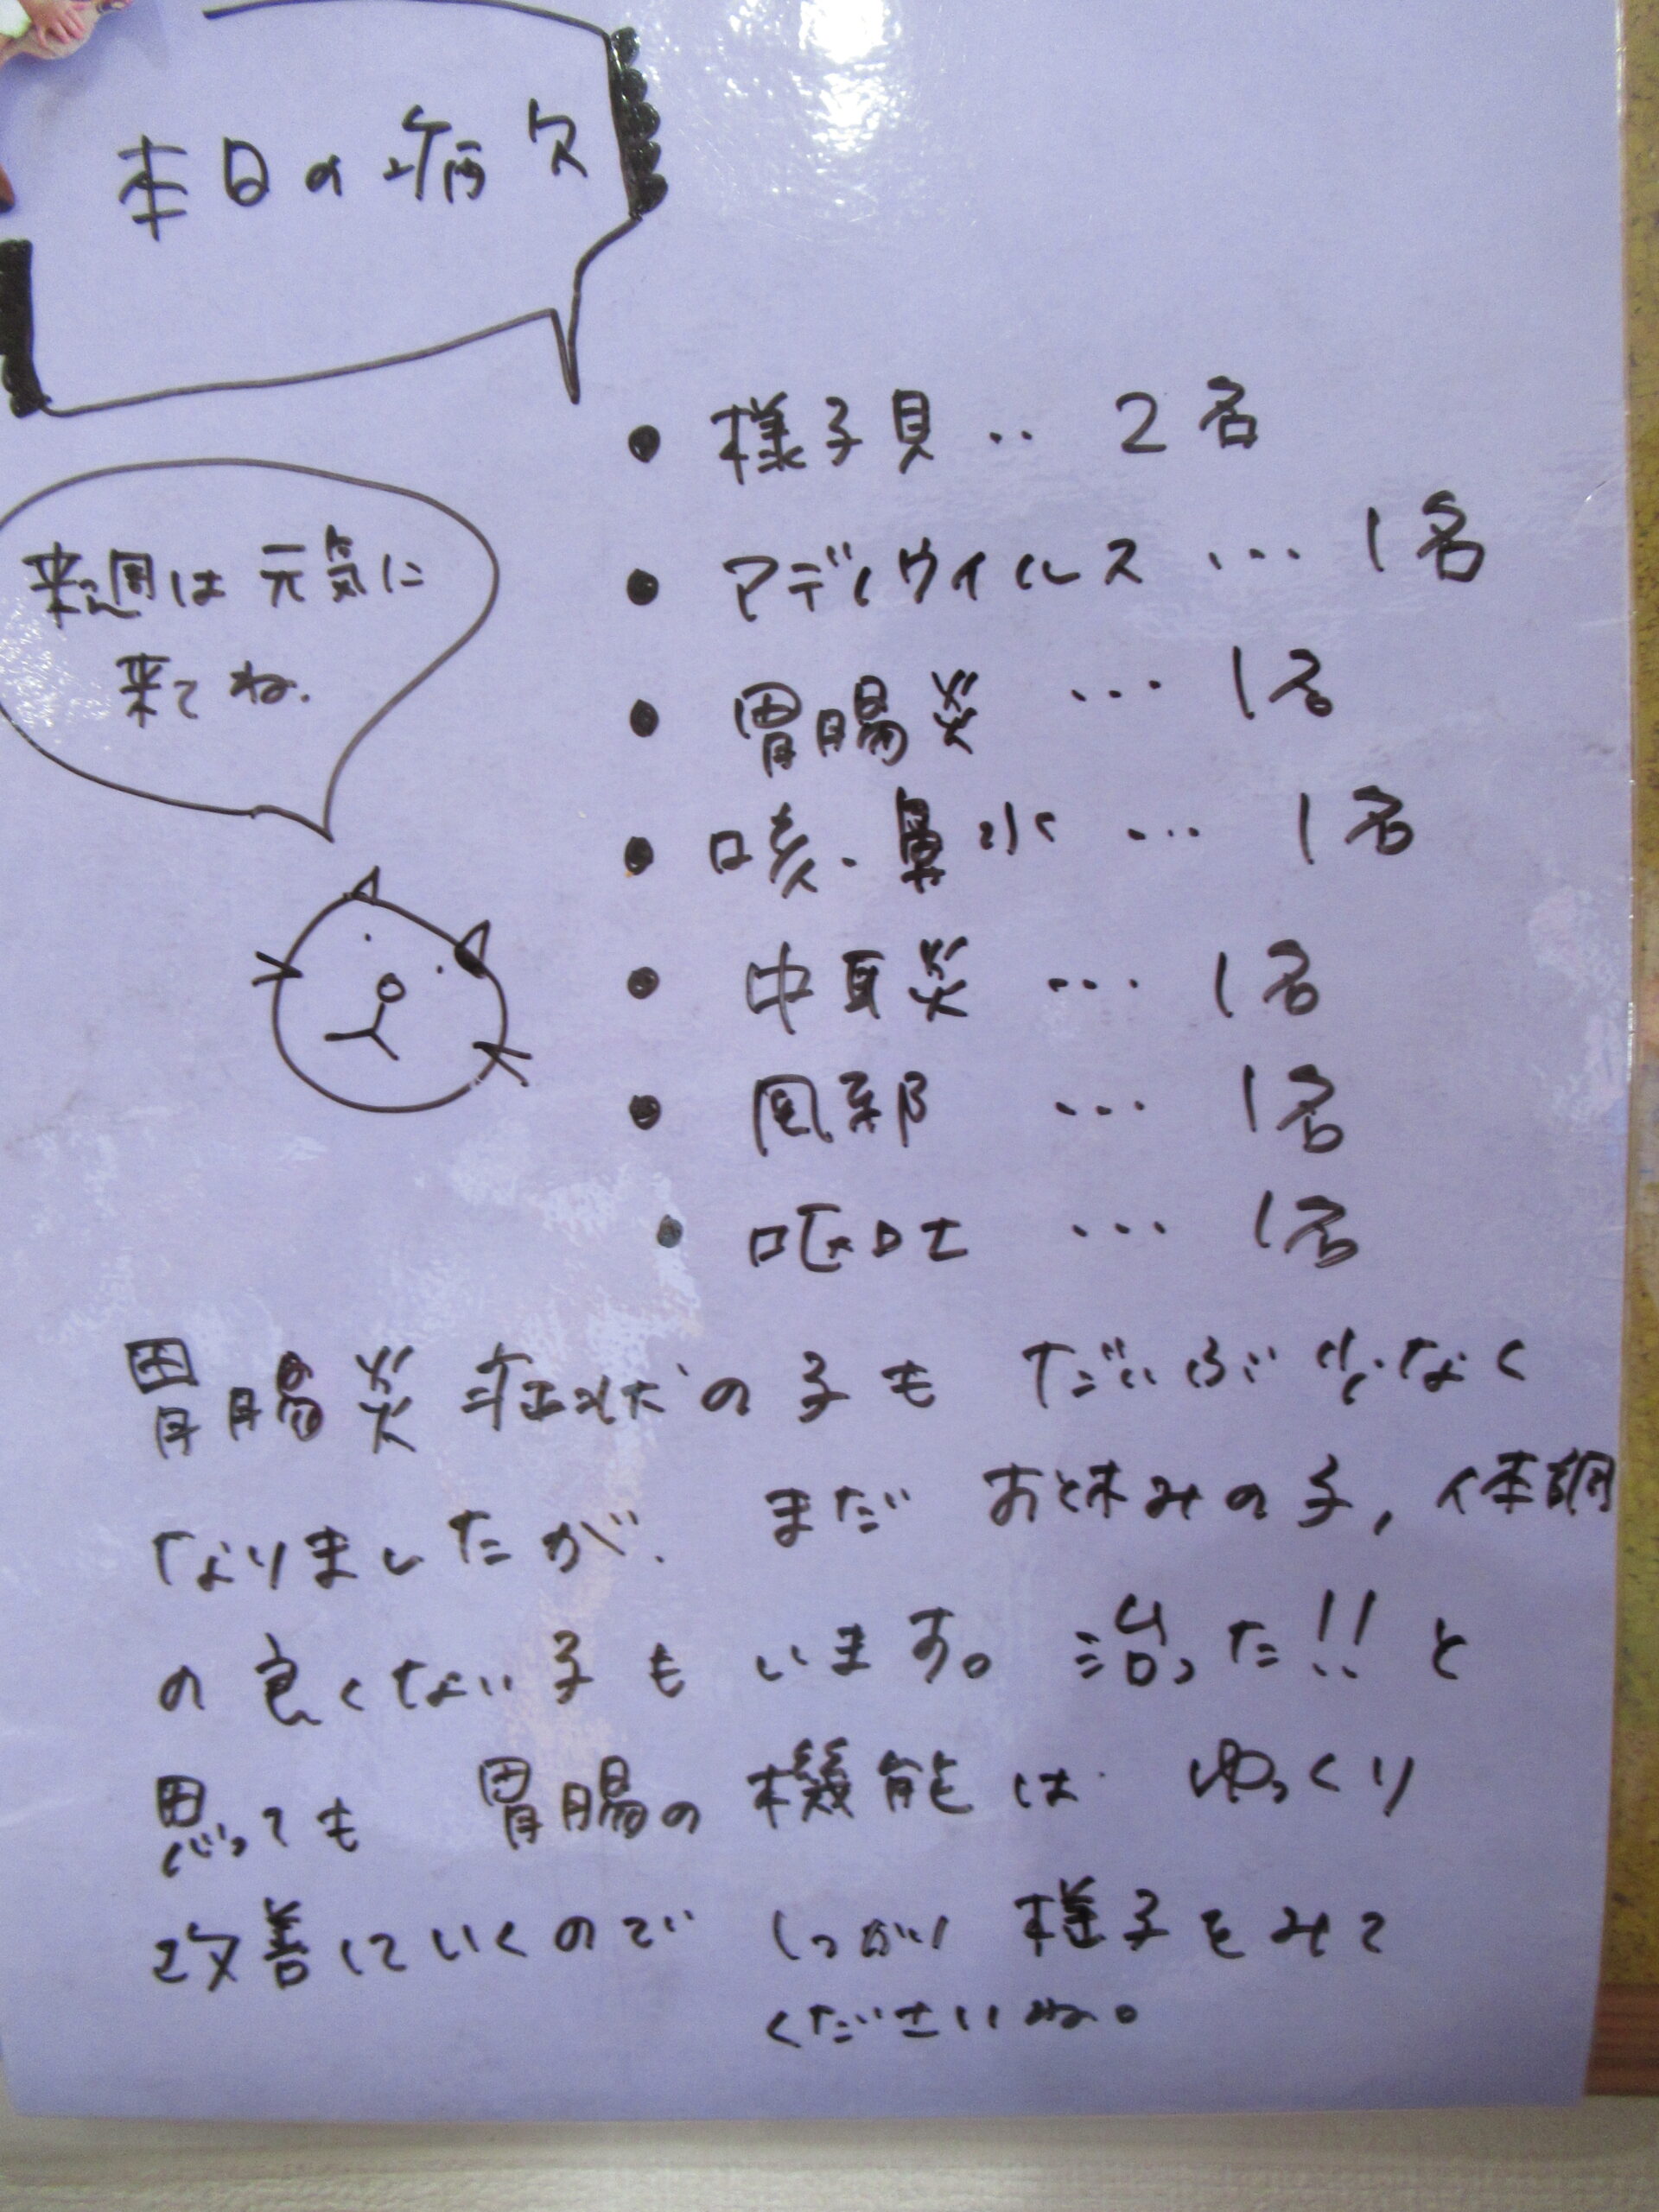 本日の病欠
来週は元気に
来てね.
• 様子見‥ 2名
• アデノウイルス … 1名
• 胃腸炎 … 1名
• 咳・鼻水 … 1名
• 中耳炎 … 1名
• 風邪 … 1名
• 嘔吐 … 1名
胃腸炎症状の子も だいぶ少なく
なりましたが、まだ お休みの子、体調
の良くない子も います。治った!! と
思っても 胃腸の機能は ゆっくり
改善していくので しっかり 様子をみて
くださいね。